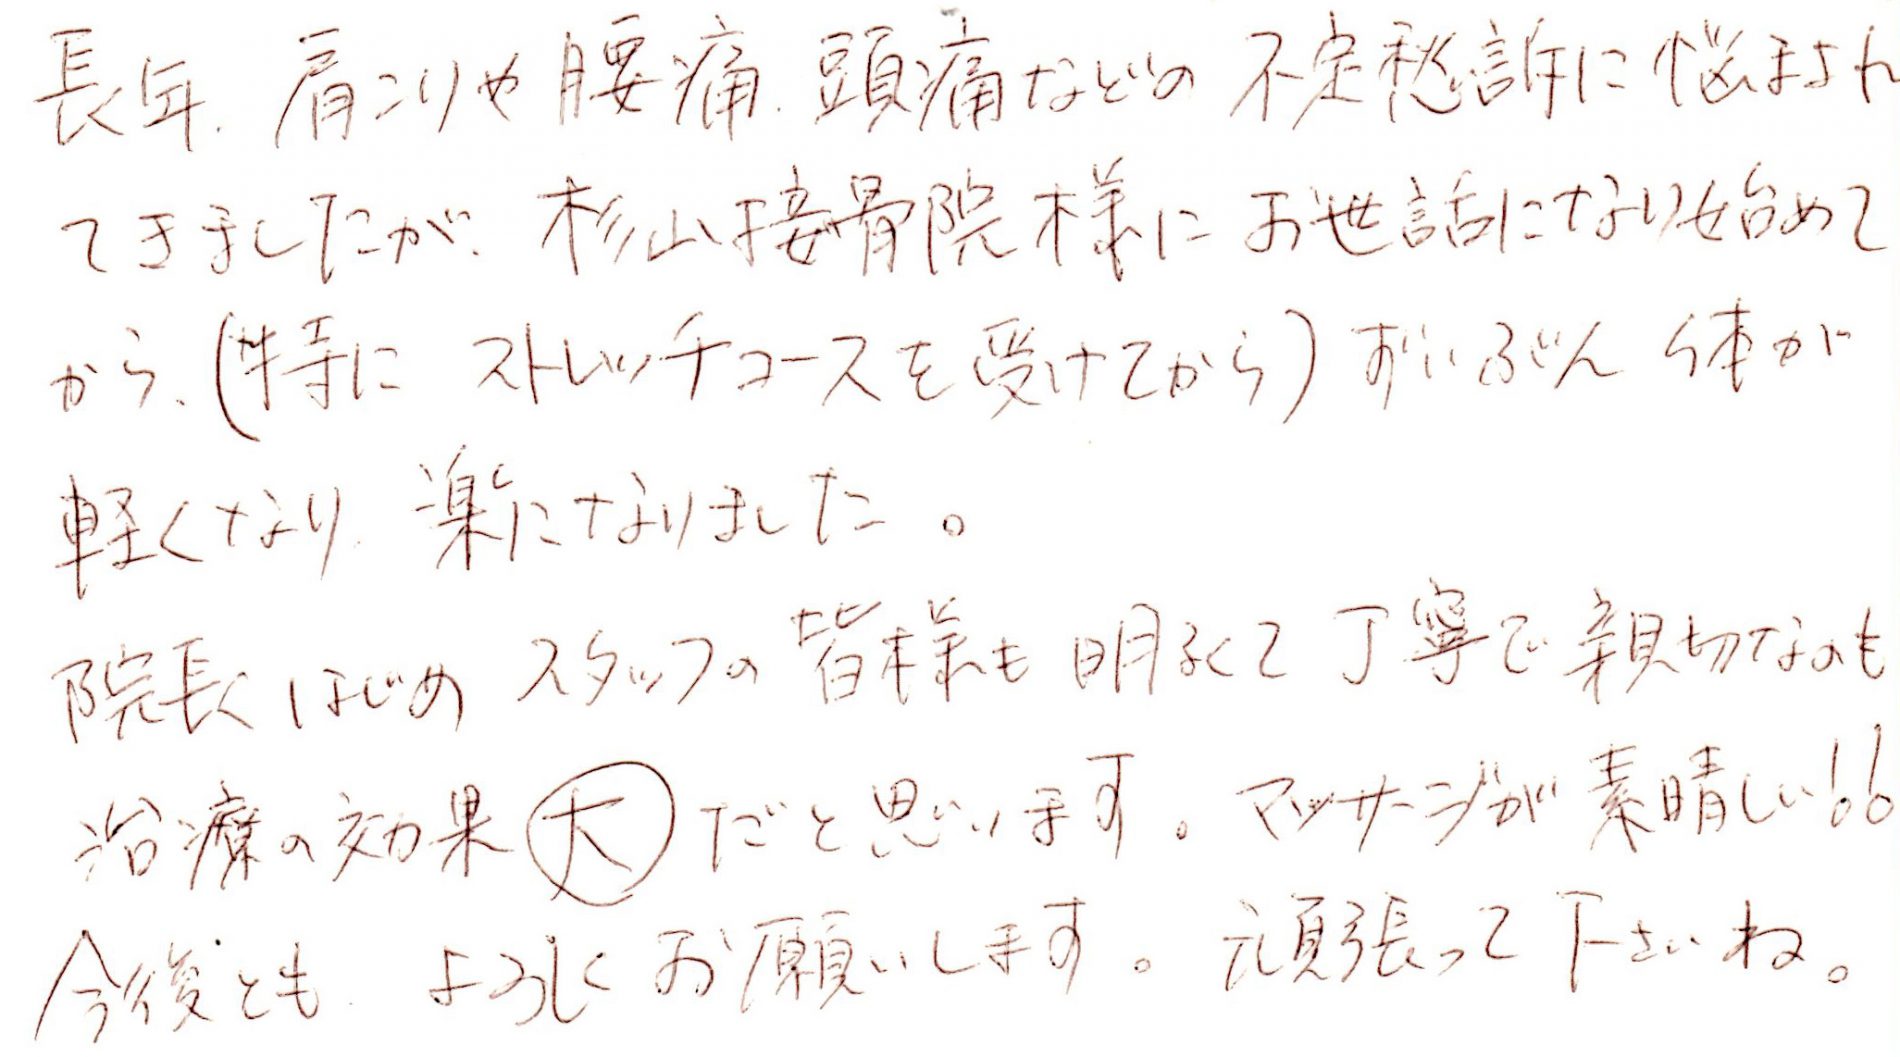 長年、肩こりや腰痛、頭痛などの不定愁訴に悩まされ
てきましたが、杉山接骨院様にお世話になり始めて
から、(特にストレッチコースを受けてから)ずいぶん体が
軽くなり、楽になりました。
院長はじめスタッフの皆様も明るくて丁寧で親切なのも
治療の効果大だと思います。マッサージが素晴しい!!
今後とも、よろしくお願いします。頑張って下さいね。